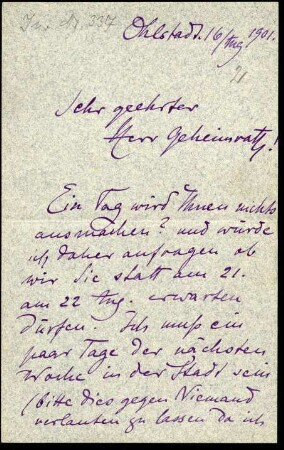 Inv. Nr. 337
Ohlstadt. 16/Aug 1901.
21
Sehr geehrter
Herr Geheimrath!
Ein Tag wird Ihnen nichts
ausmachen? und würde
ich daher anfragen ob
wir Sie statt am 21.
am 22 Aug. erwarten
dürfen. Ich muß ein
paar Tage der nächsten
Woche in der Stadt sein
(bitte dies gegen Niemand
verlauten zu lassen da ich